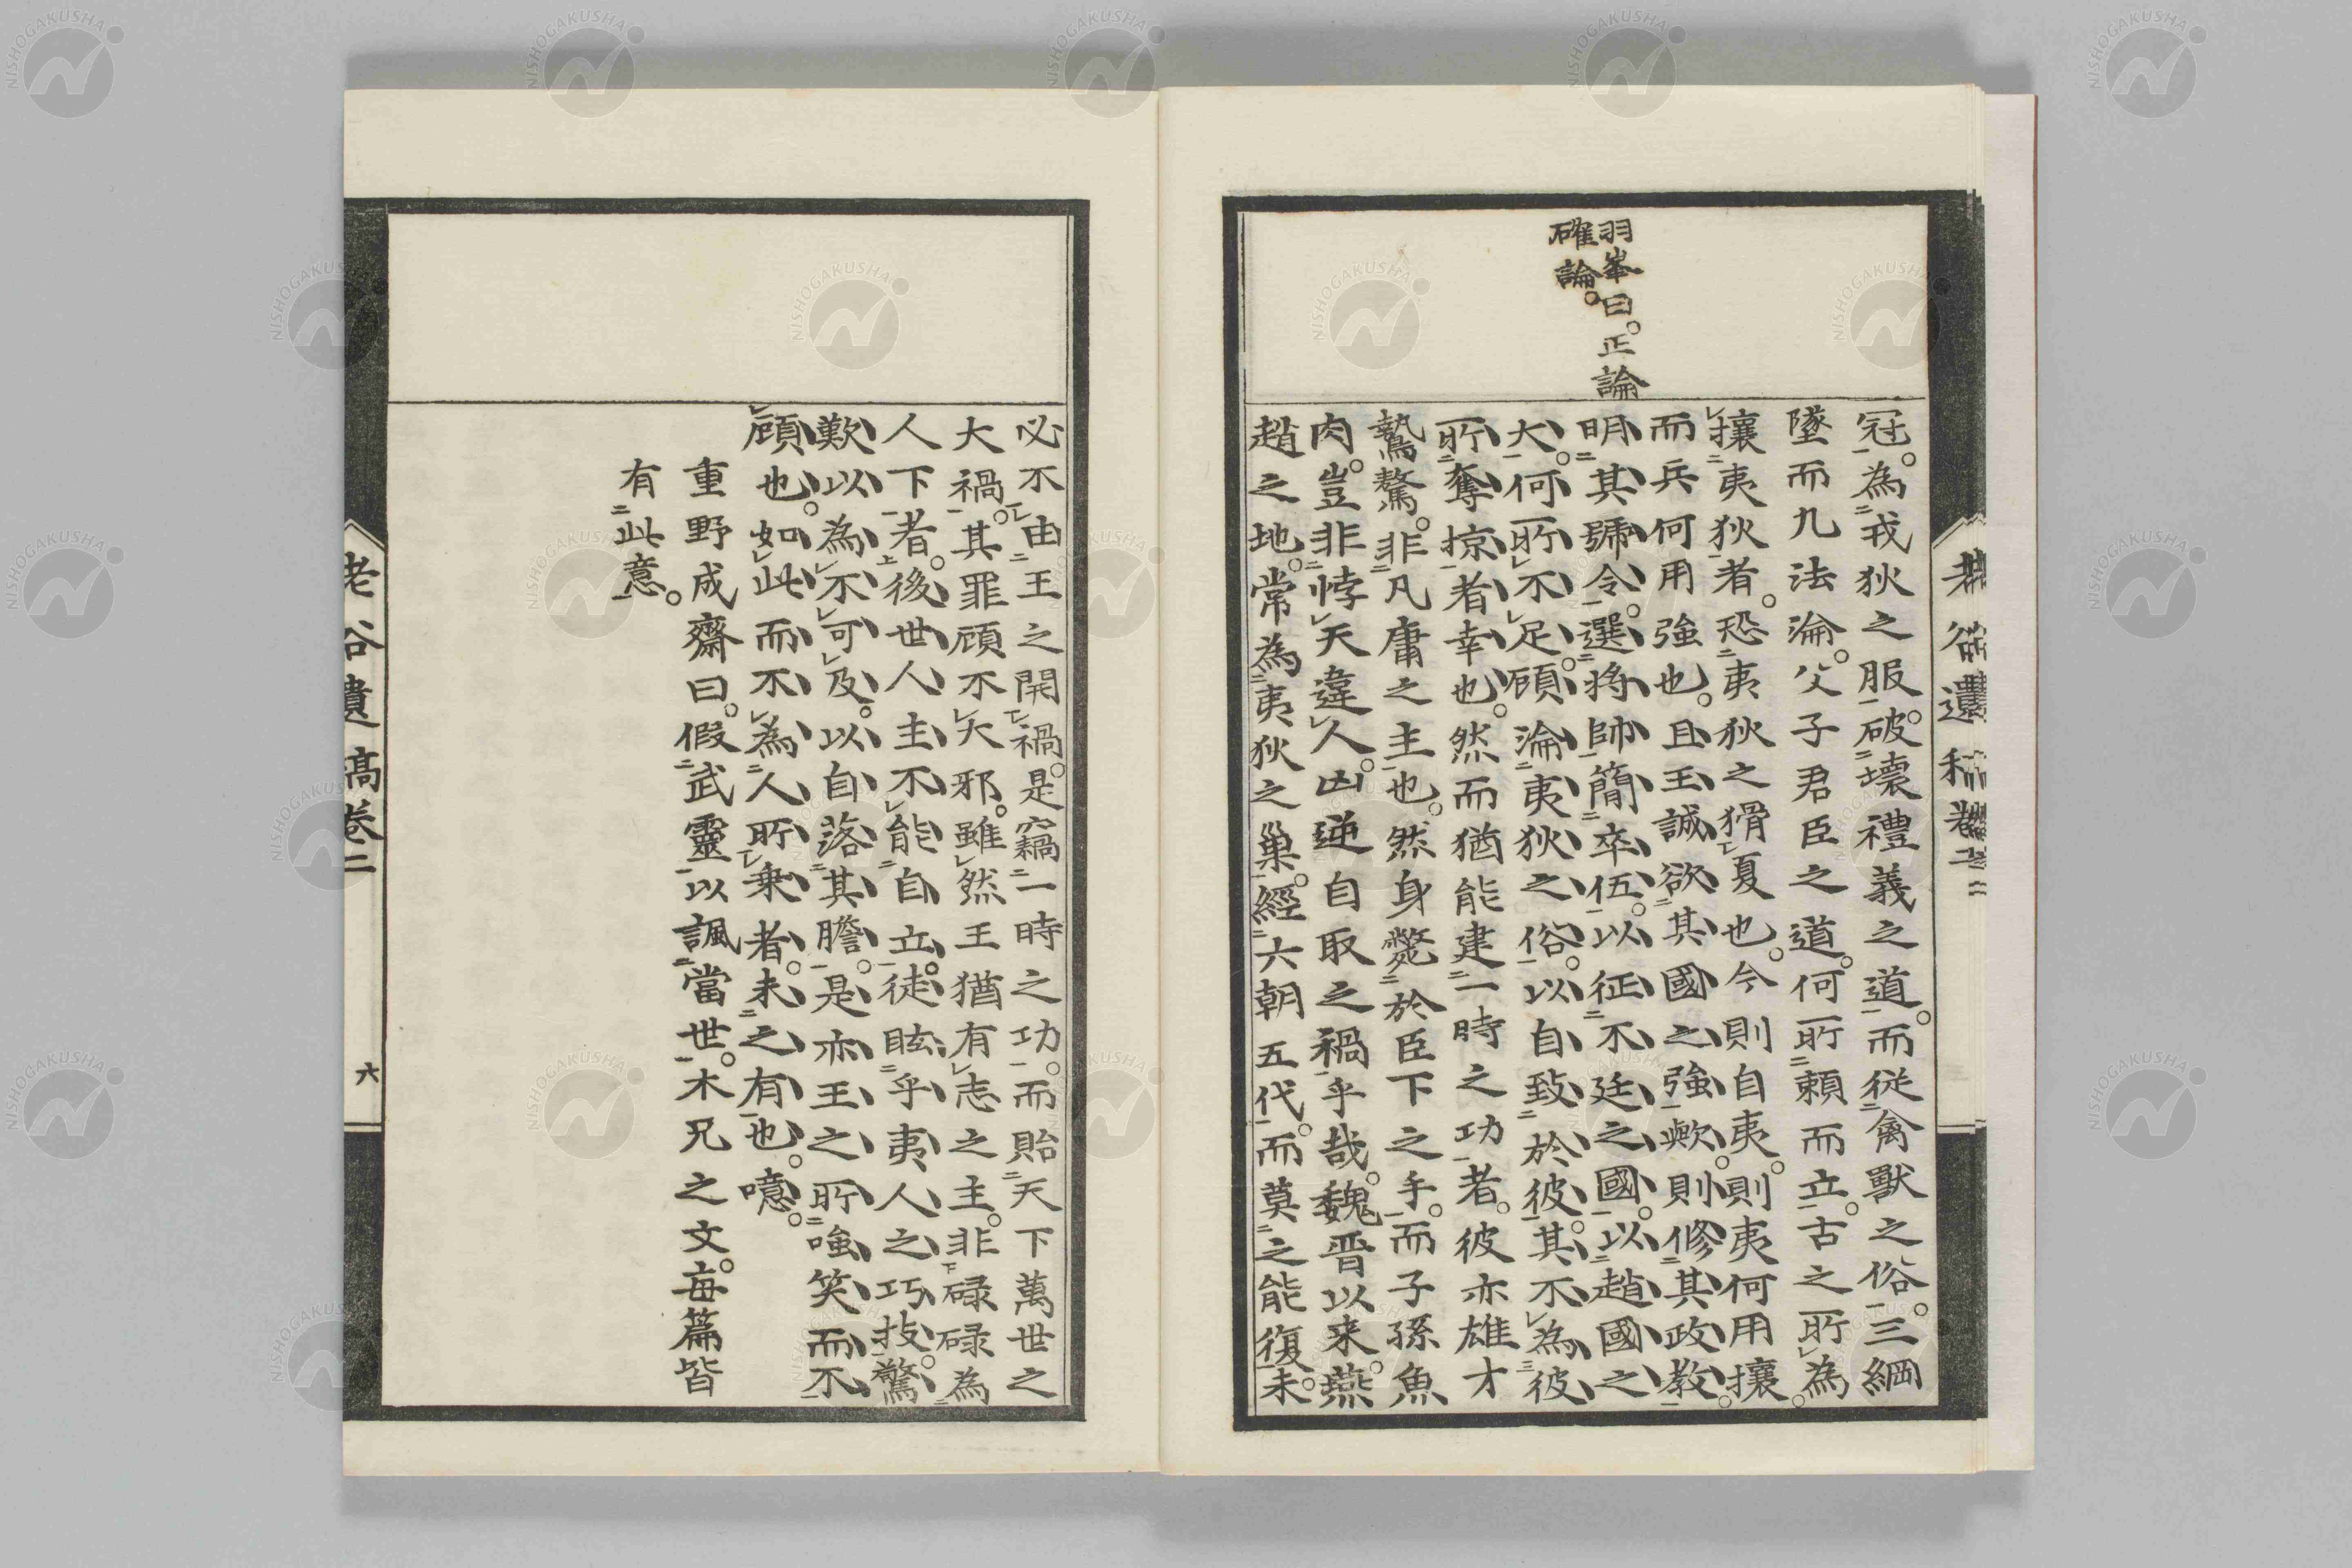 羽峯曰。正論
確論。
冠。為戎狄之服。破壞禮義之道。而從禽獸之俗。三綱
墜而九法淪。父子君臣之道。何所賴而立。古之所為
攘夷狄者。恐夷狄之猾夏也。今則自夷。則夷何用攘。
而兵何用強也。且王誠欲其國之強歟。則修其政教。
明其號令。選將帥。簡卒伍。以征不廷之國。以趙國之
大。何所不足。顧淪夷狄之俗。以自致於彼。其不為彼
所奪掠者幸也。然而猶能建一時之功者。彼亦雄才
鷙驁。非凡庸之主也。然身斃於臣下之手。而子孫魚
肉。豈非悖天違人。凶逆自取之禍乎哉。魏晋以来。燕
趙之地。常為夷狄之巢。經六朝五代。而莫之能復。未
必不由王之開禍。是竊一時之功。而貽天下萬世之
大禍。其罪顧不大邪。雖然王猶有志之主。非碌碌為
人下者。後世人主不能自立。徒眩乎夷人之巧技。驚
歎以為不可及。以自落其膽。是亦王之所嗤笑而不
顧也。如此而不為人所乗者。未之有也。噫。
重野成齋曰。假武靈以諷當世。木兄之文。每篇皆
有此意。
老谷遺稿卷二
六